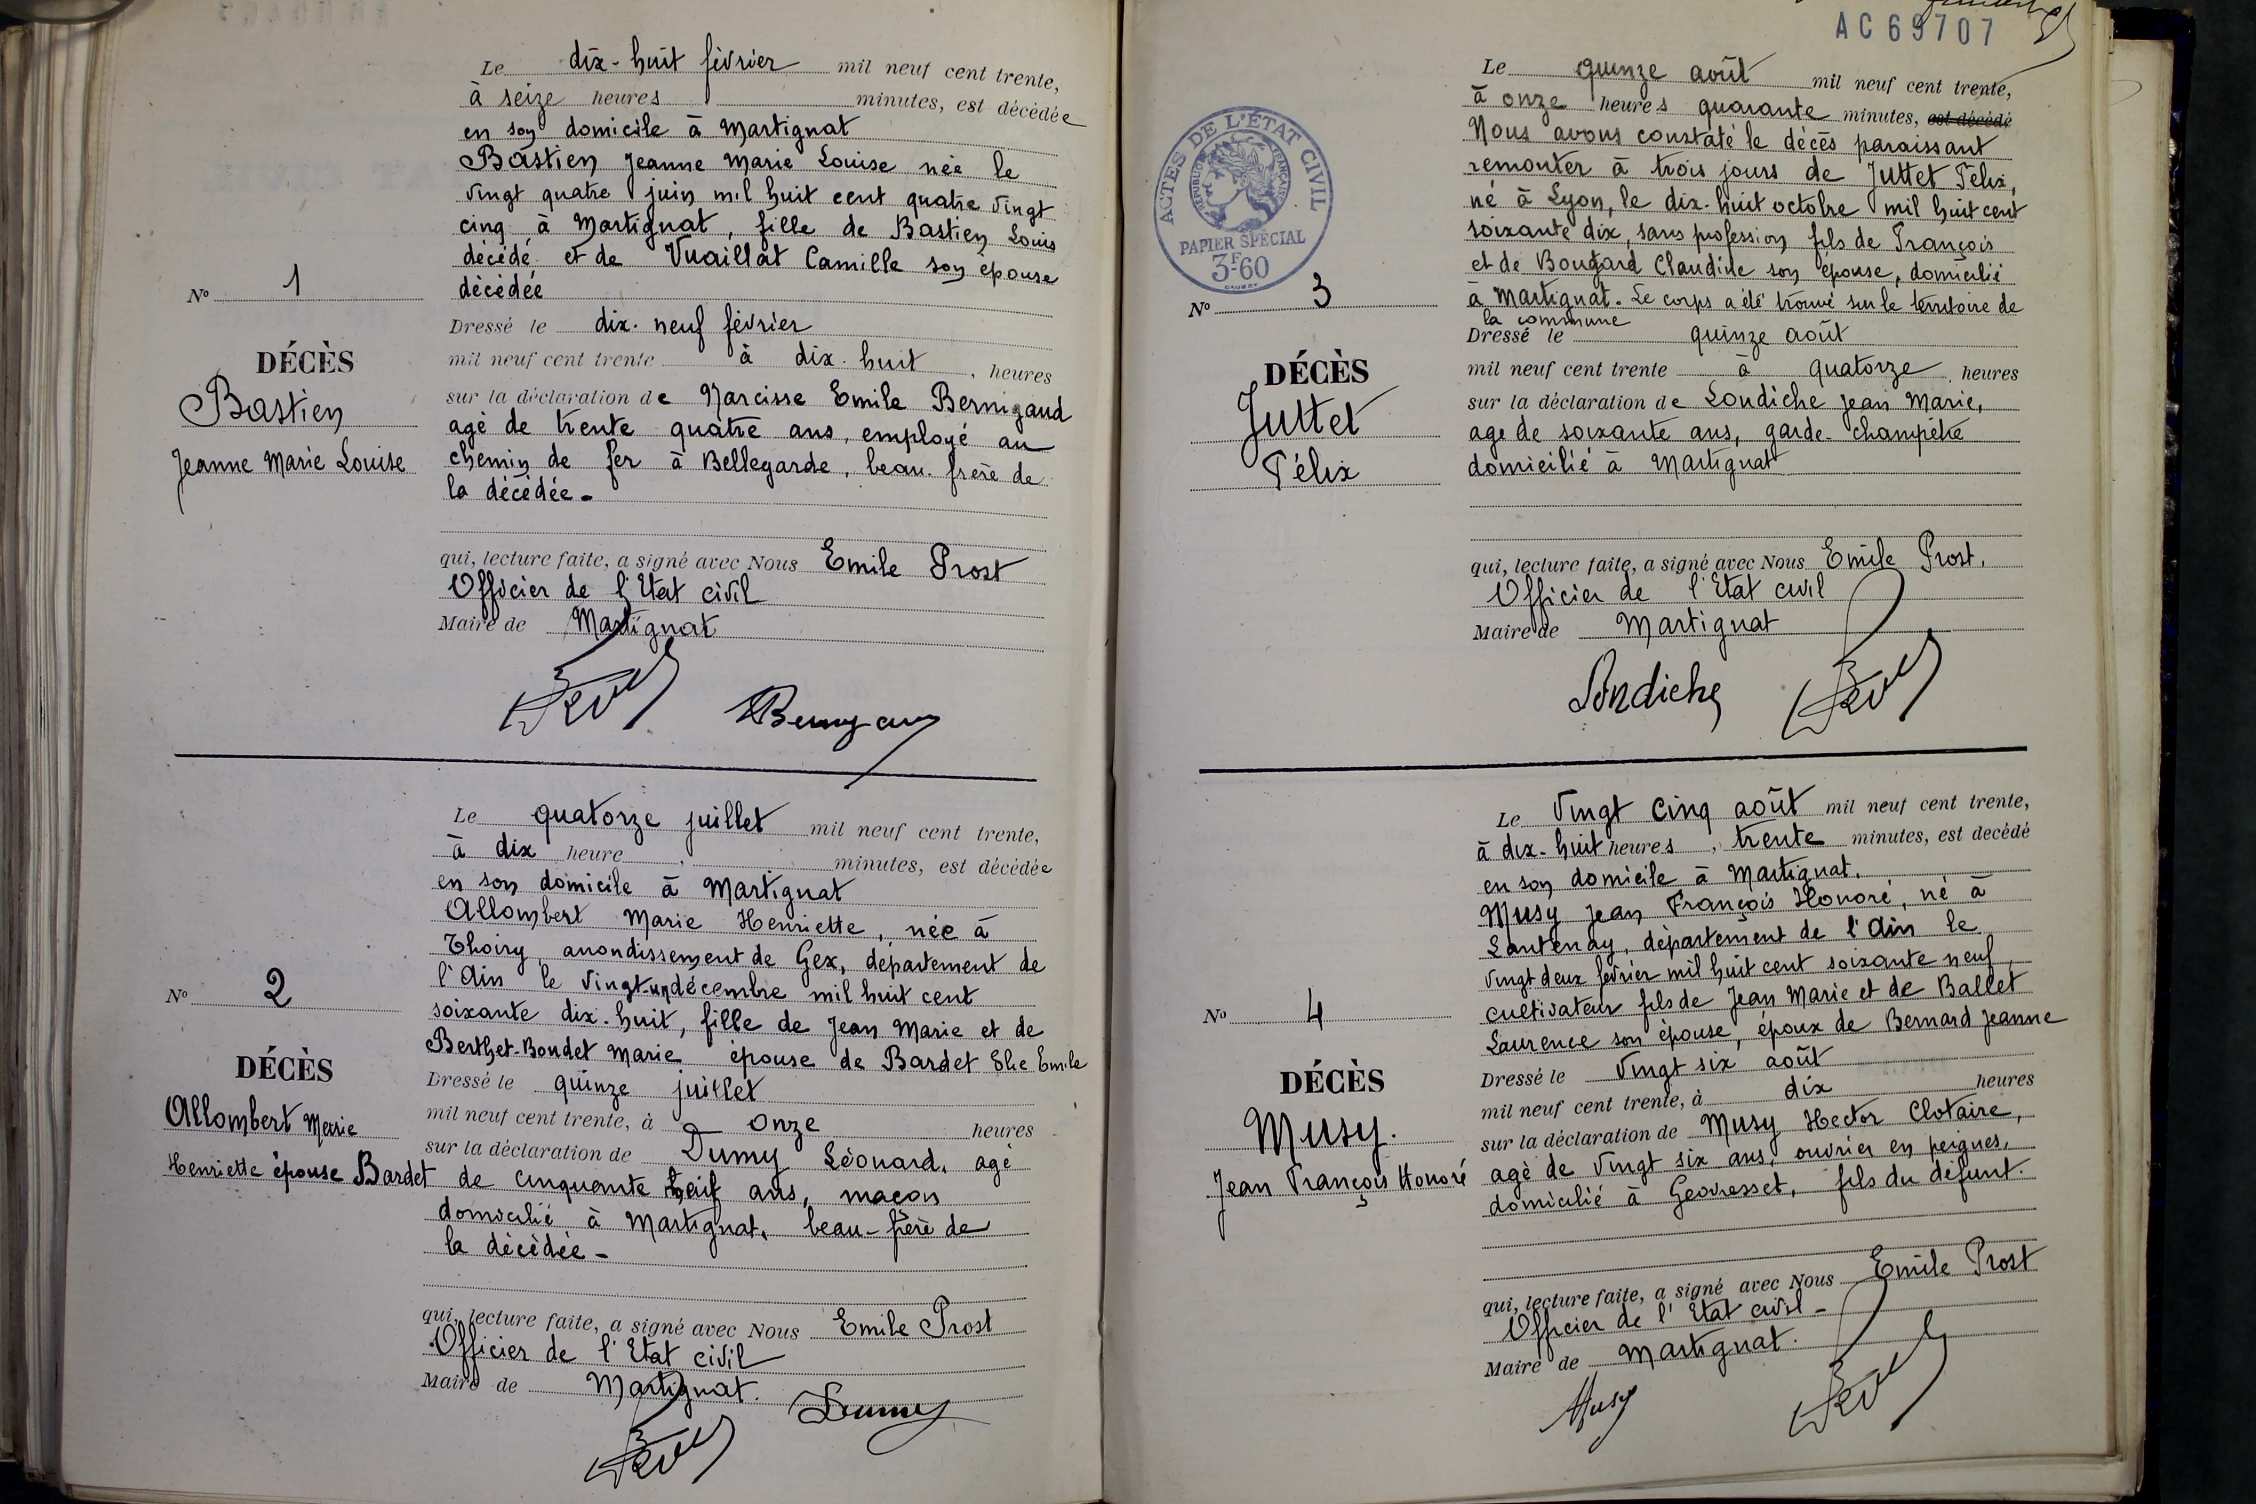 Le dix-huit février mil neuf cent trente,
à seize heures minutes, est décédée
en son domicile à Martignat
Bastien Jeanne Marie Louise née le
vingt quatre juin mil huit cent quatre vingt
cinq à Martignat, fille de Bastien Louis
décédé et de Vuaillat Camille son épouse
décédée
N° 1
Dressé le dix-neuf février
DÉCÈS
mil neuf cent trente à dix-huit, heures
Bastien
Jeanne Marie Louise
sur la déclaration de Narcisse Emile Bernigaud
agé de trente quatre ans, employé au
chemin de fer à Bellegarde, beau-frère de
la décédée -
qui, lecture faite, a signé avec Nous Emile Prost
Officier de l'Etat civil
Maire de Martignat
Le quatorze juillet mil neuf cent trente,
à dix heure minutes, est décédée
en son domicile à Martignat
Allombert Marie Henriette, née à
Thoiry arrondissement de Gex, département de
l'Ain le vingt-un décembre mil huit cent
soixante dix-huit, fille de Jean Marie et de
Berthet-Bondet Marie épouse de Bardet Elie Emile
N° 2
DÉCÈS
Allombert Marie
Henriette épouse Bardet
Dressé le quinze juillet
mil neuf cent trente, à onze heures
sur la déclaration de Dumy Léonard, agé
de cinquante ans, maçon
domicilié à Martignat, beau-frère de
la décédée -
qui, lecture faite, a signé avec Nous Emile Prost
Officier de l'Etat civil
Maire de Martignat.
Dumy
AC 69707
ACTES DE L'ÉTAT CIVIL
RÉPUBLIQUE FRANÇAISE
PAPIER SPÉCIAL
3F60
Le quinze août mil neuf cent trente,
à onze heures quarante minutes, est décédé
Nous avons constaté le décès paraissant
remonter à trois jours de Juttet Félix,
né à Lyon, le dix-huit octobre mil huit cent
soixante dix, sans profession fils de François
et de Bougard Claudine son épouse, domicilié
à Martignat. Le corps a été trouvé sur le territoire de
la commune
N° 3
DÉCÈS
Juttet
Félix
Dressé le quinze août
mil neuf cent trente à quatorze, heures
sur la déclaration de Londiche Jean Marie,
age de soixante ans, garde-champêtre
domicilié à Martignat
qui, lecture faite, a signé avec Nous Emile Prost.
Officier de l'Etat civil
Maire de Martignat
Londiche
Le vingt cinq août mil neuf cent trente,
à dix-huit heures, trente minutes, est decédé
en son domicile à Martignat.
Musy Jean François Honoré, né à
Lantenay, département de l'Ain le
vingt deux février mil huit cent soixante neuf,
cultivateur fils de Jean Marie et de Ballet
Laurence son épouse, époux de Bernard Jeanne
N° 4
DÉCÈS
Musy.
Jean François Honoré
Dressé le vingt six août
mil neuf cent trente, à dix heures
sur la déclaration de Musy Hector Clotaire,
agé de vingt six ans, ouvrier en peignes,
domicilié à Geovresset, fils du défunt.
qui, lecture faite, a signé avec Nous Emile Prost
Officier de l'Etat civil -
Maire de Martignat.
Musy